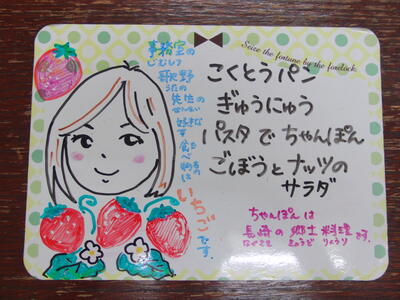 Seize the fortune by the forelock.
事務室の
じむしつ
歌野
うたの
先生の
せんせい
好きな
す
食べ物は
た もの
いちごです。
こくとうパン
ぎゅうにゅう
パスタで ちゃんぽん
ごぼうとナッツの
サラダ
ちゃんぽんは
長崎の郷土料理です。
ながさき きょうど りょうり